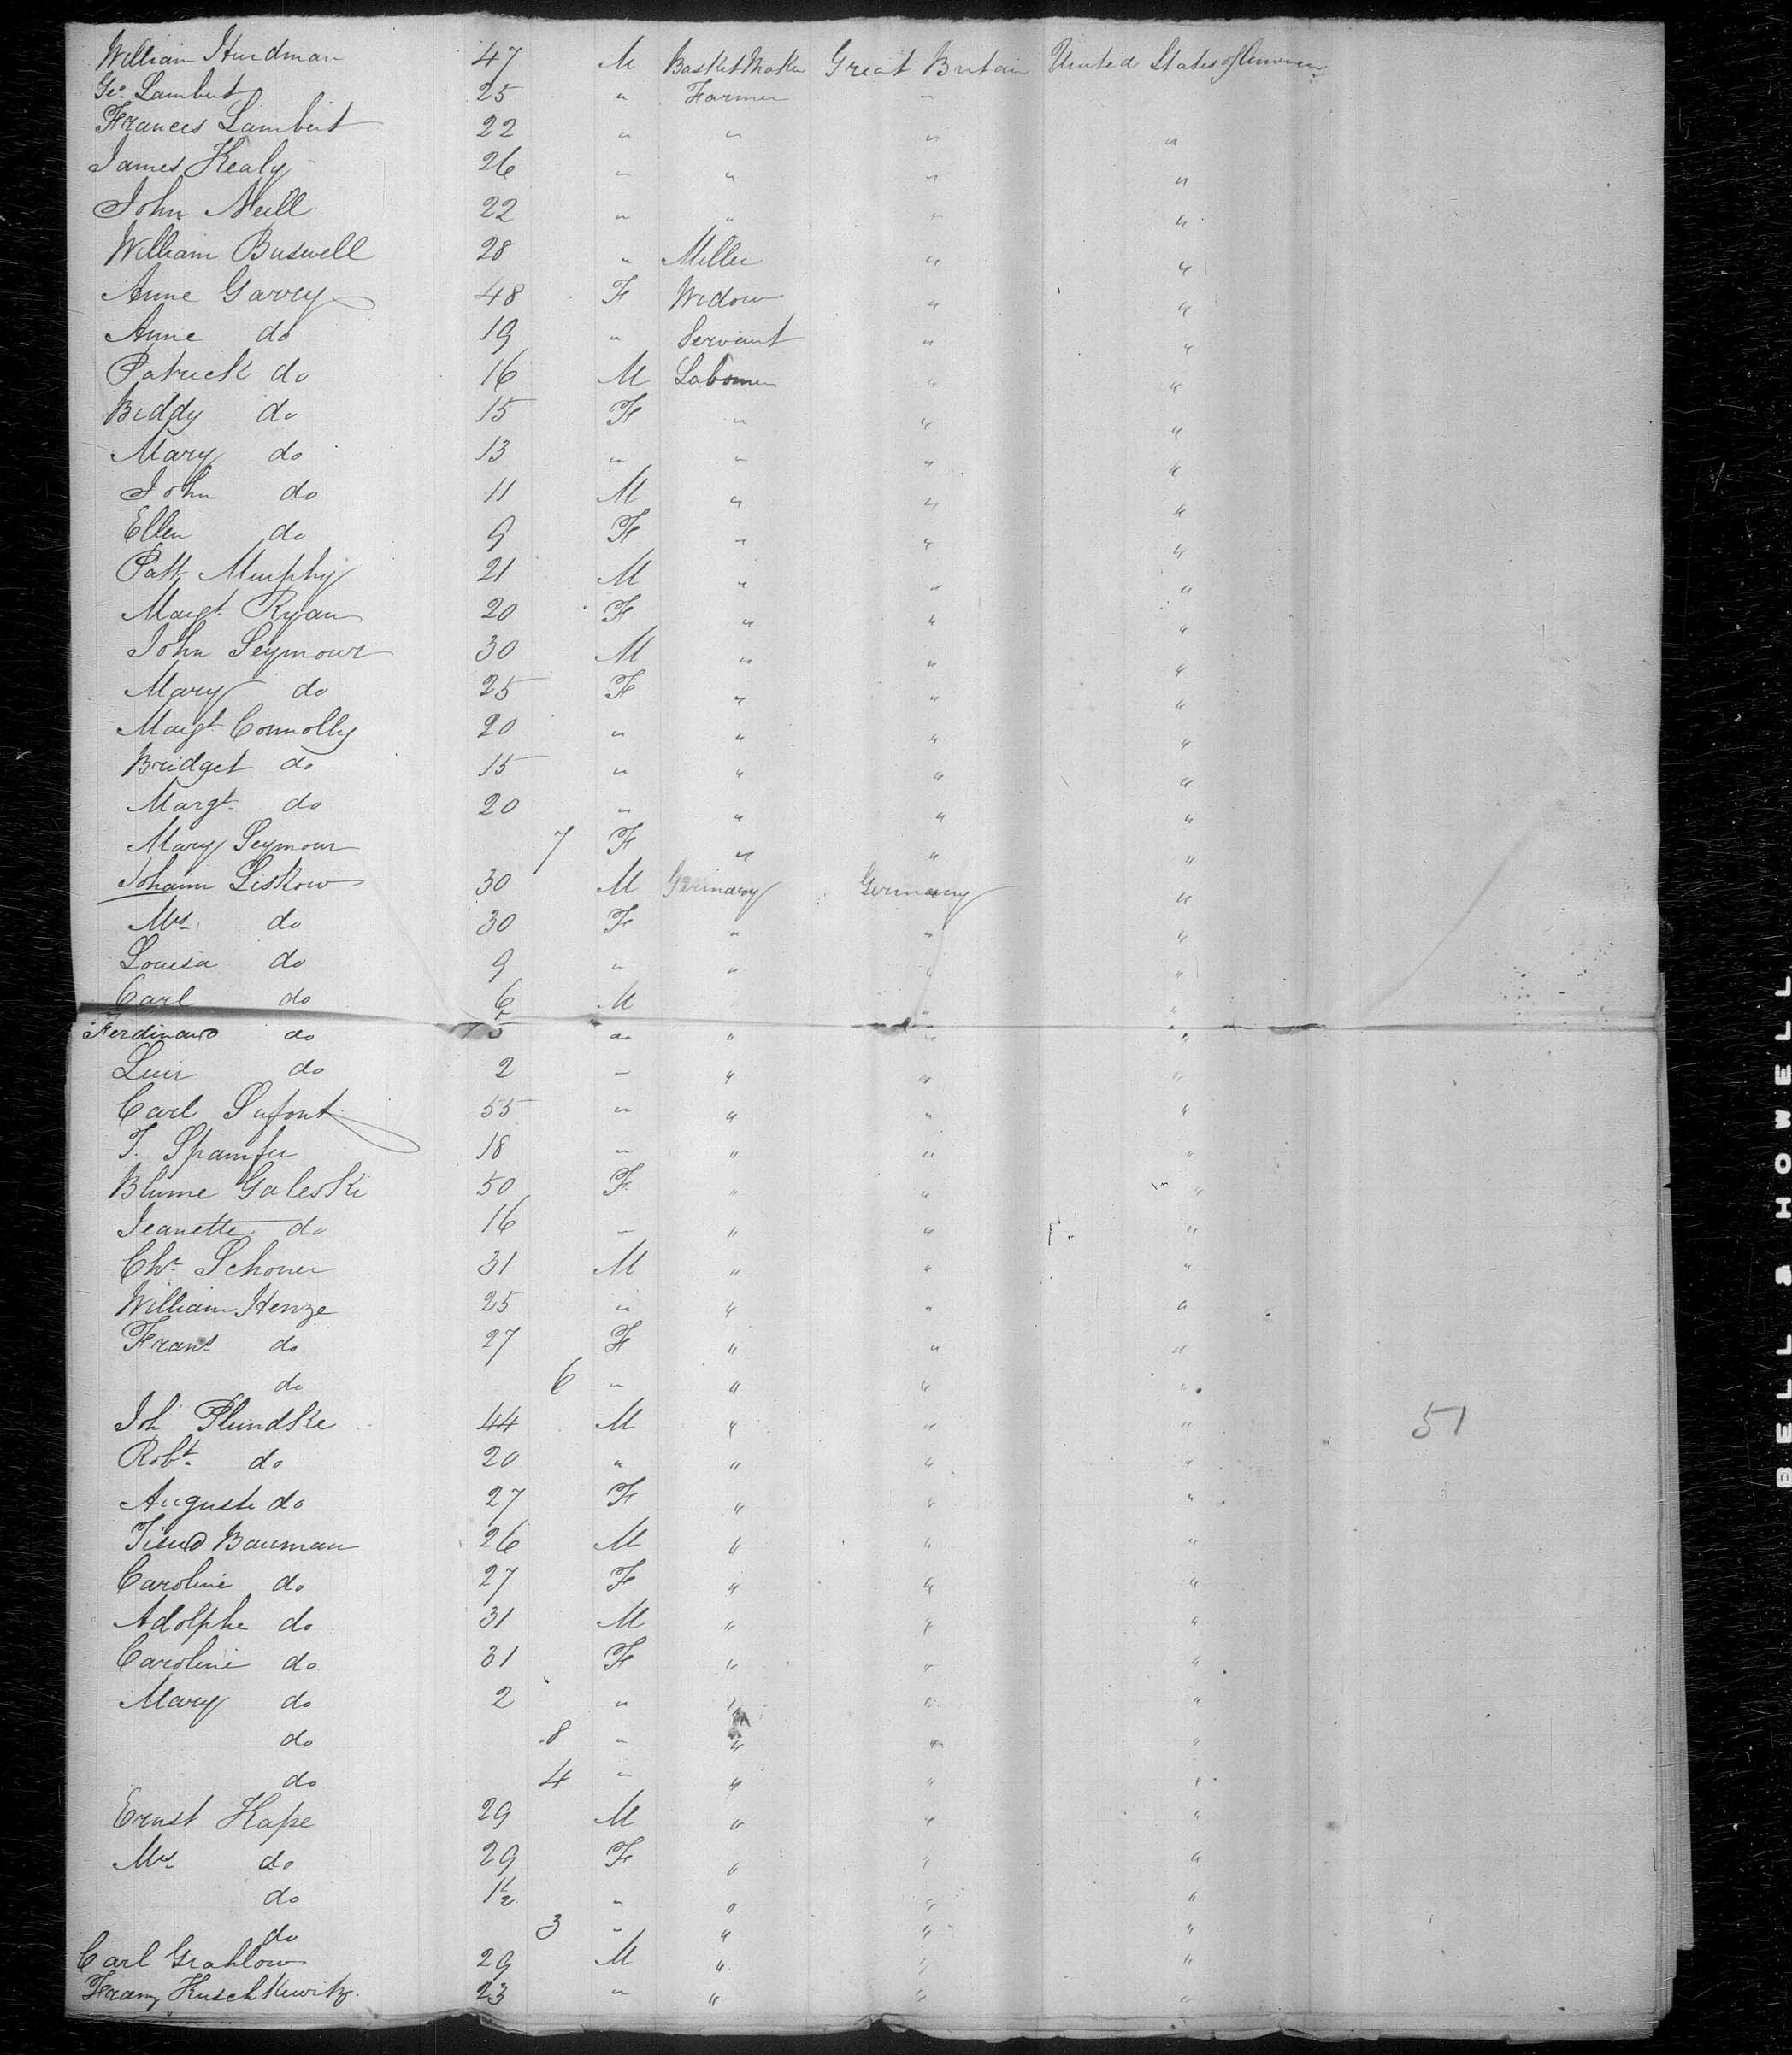 William Hurdman 47 M Basket Maker Great Britain United States of America
Geo. Lambert 25 " Farmer "
Frances Lambert 22 " " " "
James Healy 26 " " " "
John Neill 22 " " " "
William Buswell 28 " Miller " "
Anne Garvey 48 F Widow " "
Anne do 19 " Servant " "
Patrick do 16 M Labourer " "
Biddy do 15 F " " "
Mary do 13 " " " "
John do 11 M " " "
Ellen do 9 F " " "
Patt Murphy 21 M " " "
Margt. Ryan 20 F " " "
John Seymour 30 M " " "
Mary do 25 F " " "
Margt. Connolly 20 " " " "
Bridget do 15 " " " "
Margt. do 20 " " " "
Mary Seymour 7 F " " "
Johann Liskow 30 M Germany Germany "
Mrs. do 30 F " " "
Louisa do 9 " " " "
Carl do 6 M " " "
Ferdinand do 5 do " " "
do 2 " " " "
Carl 55 " " " "
18 " " " "
Blume Galeski 50 F " " "
Jeanette do 16 " " " "
Chr. Schoner 31 M " " "
William Henze 25 " " " "
Frans do 27 F " " "
do 6 " " " "
Joh Plundke 44 M " " " 51
Robt. do 20 " " " "
Auguste do 27 F " " "
Bauman 26 M " " "
Caroline do 27 F " " "
Adolphe do 31 M " " "
Caroline do 31 F " " "
Mary do 2 " " " "
do 8 " " " "
do 4 " " " "
Ernst Hape 29 M " " "
Mrs. do 29 F " " "
do 1½ " " " "
do 3 " " " "
Carl Grahlow 29 M " " "
Franz Huschkewitz. 23 " " " "
BELL & HOWELL